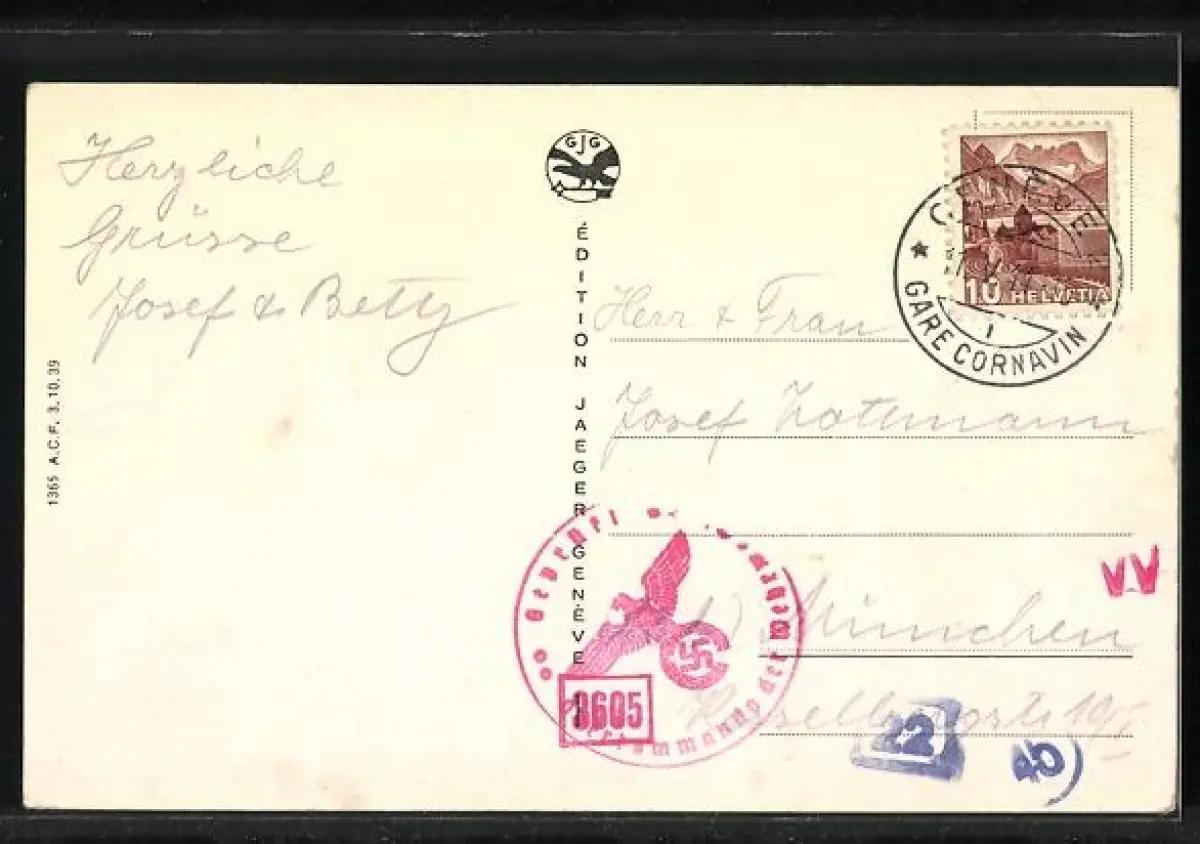 Herzliche
Grüsse
Josef & Betty
1365 A.C.F. 3.10.39
GJG
ÉDITION JAEGER GENÈVE
GENÈVE
GARE CORNAVIN
10 HELVETIA
Herr & Frau
Josef
München
19
Geprüft
Wehrmacht
der
8605
VV
22